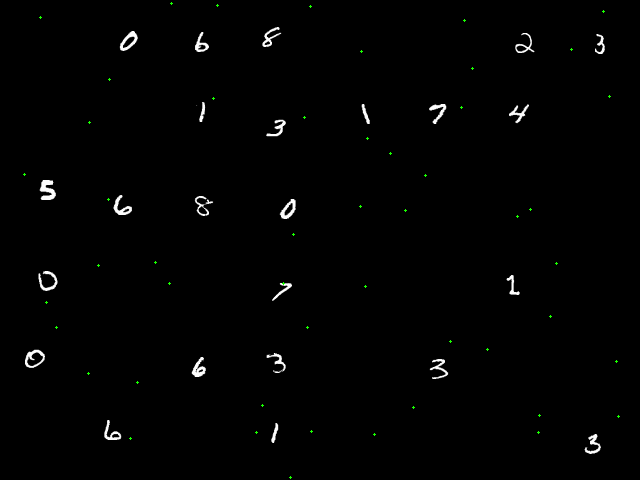 0 6 8 2 3
1 3 1 7 4
5 6 8 0
0 7 1
0 6 3 3
6 1 3